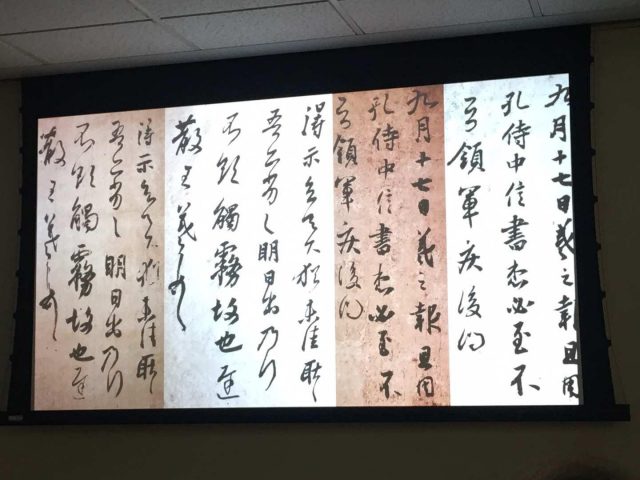 九月十七日羲之報且因
孔侍中信書想必至不
知領軍疾後問
九月十七日羲之報且因
孔侍中信書想必至不
知領軍疾後問
得示知足下猶未佳耿耿
吾亦劣劣明日出乃行
不欲觸霧故也遲
散王羲之頓首
得示知足下猶未佳耿耿
吾亦劣劣明日出乃行
不欲觸霧故也遲
散王羲之頓首